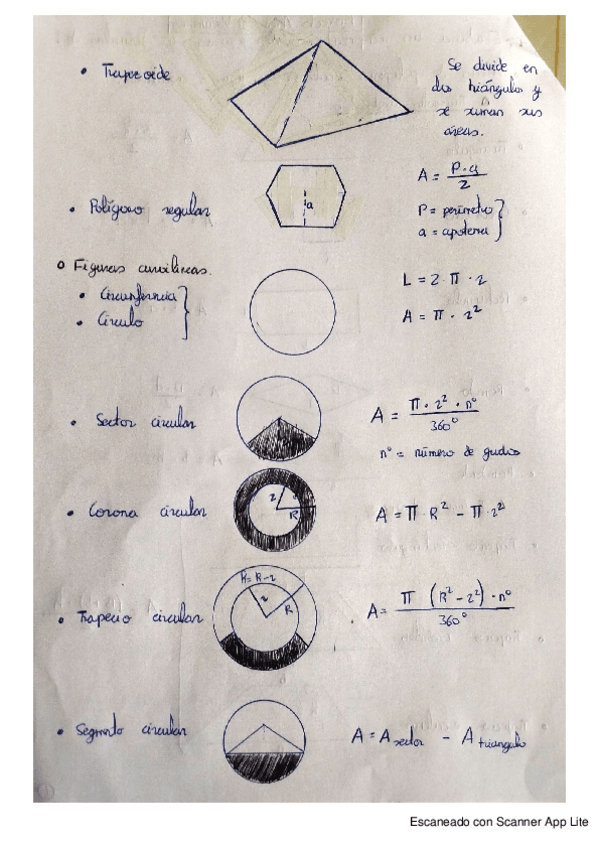 • Trapezoide
Se divide en
dos triángulos y
se suman sus
áreas.
• Polígono regular
a
A = P·a / 2
P = perímetro
a = apotema
○ Figuras curvilíneas.
• Circunferencia
• Círculo
L = 2·π·r
A = π·r²
• Sector circular
A = π·r²·n° / 360°
n° = número de grados
• Corona circular
r
R
A = π·R² - π·r²
• Trapecio circular
R - r
r
R
A = π (R² - r²)·n° / 360°
• Segmento circular
A = A sector - A triangulo
Escaneado con Scanner App Lite